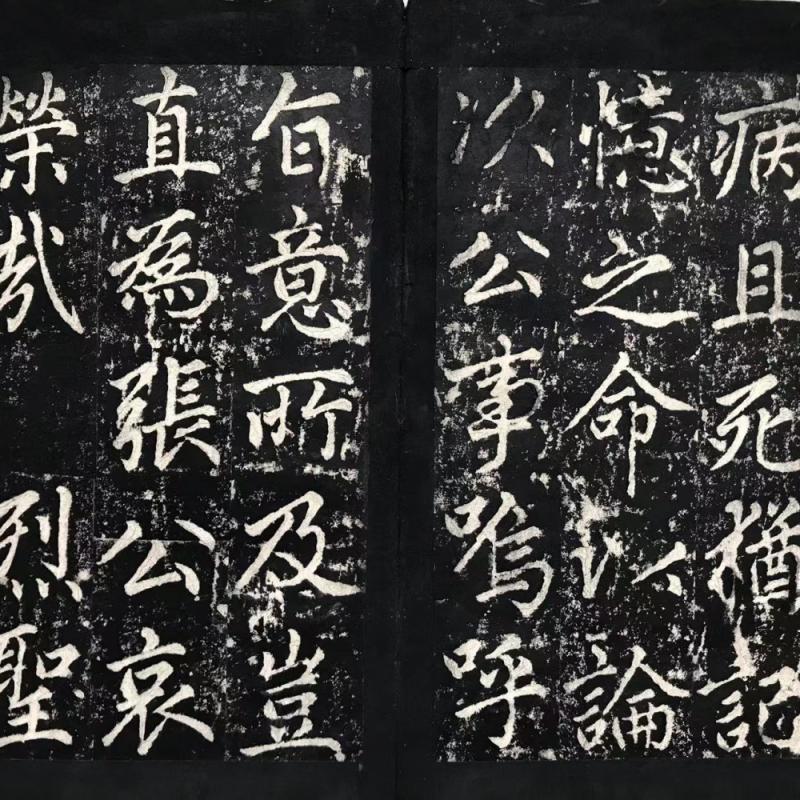 病且死猶記
憶之命以論
次公事嗚呼
旨意所及豈
直為張公哀
榮哉 烈聖